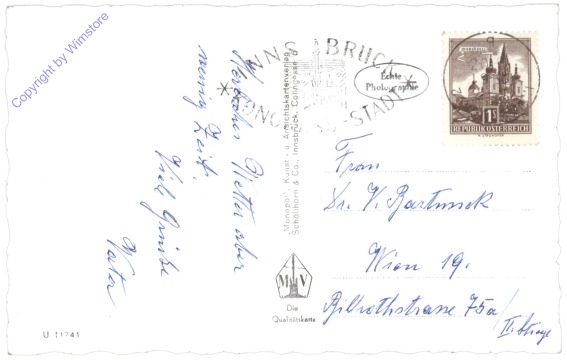 Copyright by Wimstore
Herrliches Wetter aber
wenig Zeit.
Viele Grüße
Vater
"Monopol", Kunst- u. Ansichtskartenverlag
Schöllhorn & Co., Innsbruck, Colingasse
INNSBRUCK
KONGRESS-STADT
Echte
Photographie
MARIAZELL
1S
REPUBLIK ÖSTERREICH
Frau
Dr. V. Bartussek
Wien 19.
Billrothstrasse 75a/
II. Stiege
M V
Die
Qualitätskarte
U 11741